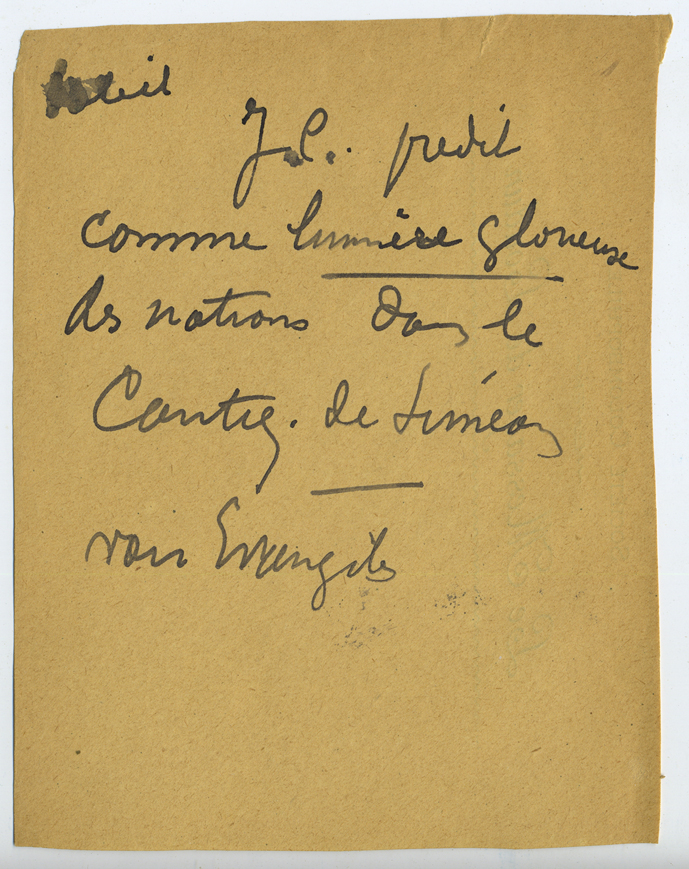 Soleil
J.C. prédit
comme lumière glorieuse
des nations dans le
Cantiq. de Siméon
voir Evangiles